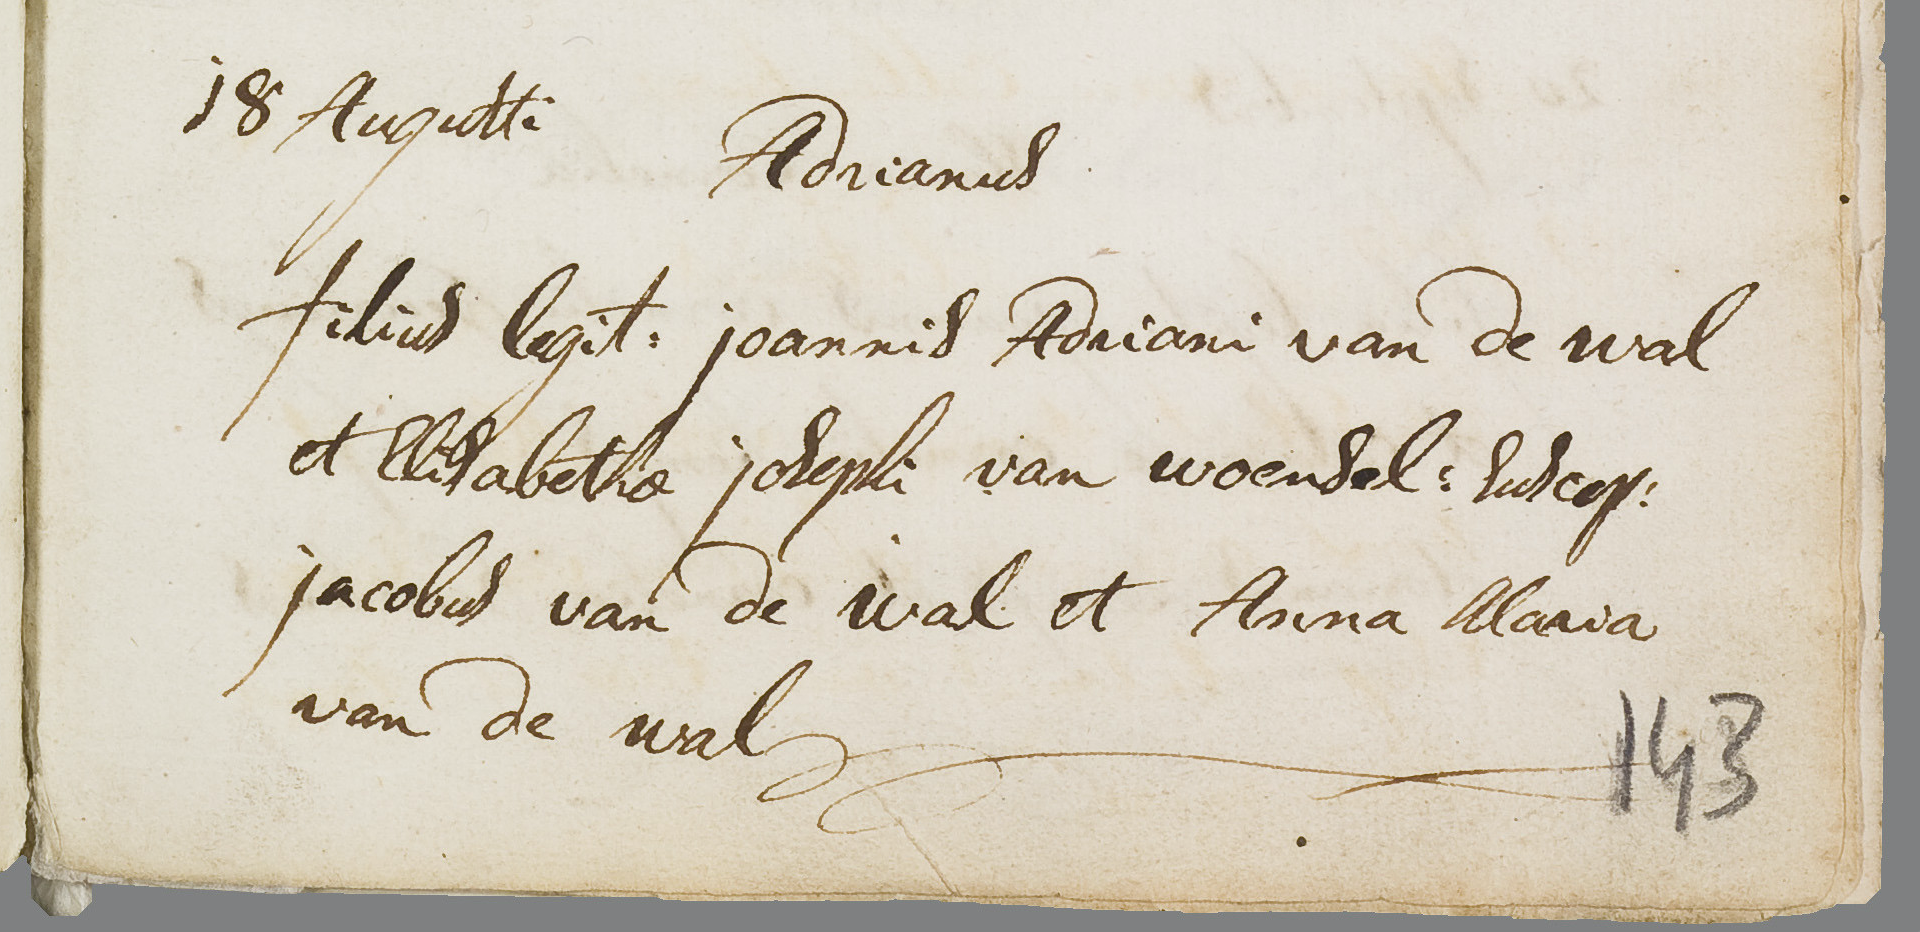 18 Augusti
Adrianus
filius legit: joannis Adriani van de wal
et Elisabethæ josephi van woensel: Suscep:
jacobus van de wal et Anna Maria
van de wal
143